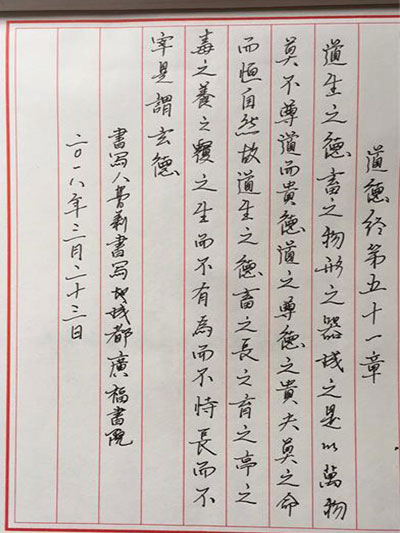 道德经第五十一章
道生之德畜之物形之器之是以萬物
莫不尊道而貴德道之尊德之貴夫莫之命
而恒自然故道生之德畜之長之育之亭之
毒之養之覆之生而不有為而不恃長而不
宰是謂玄德
書写人書写地城都廣福書院
二〇一八年三月二十三日